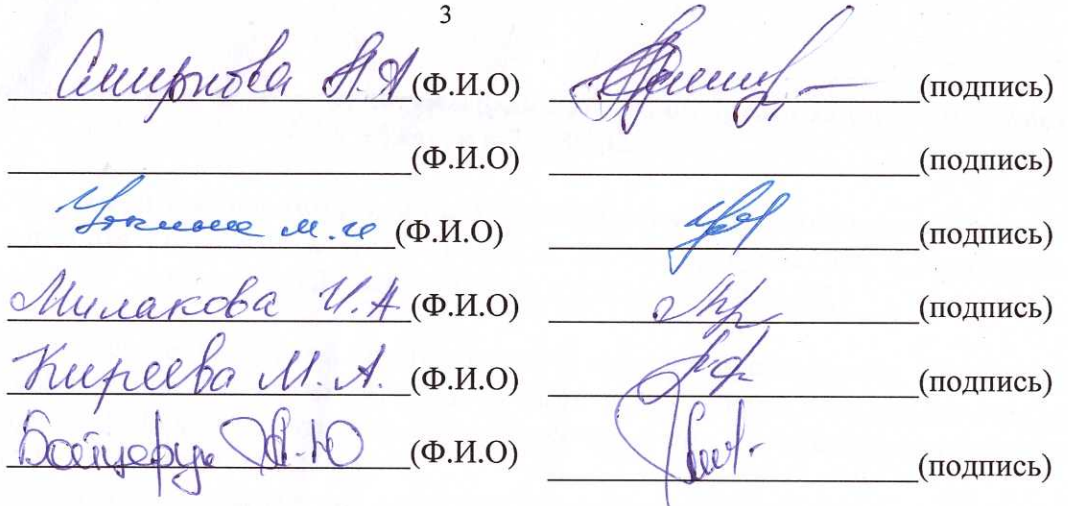 3
Смирнова Н.А (Ф.И.О) (подпись)
(Ф.И.О) (подпись)
М.И (Ф.И.О) (подпись)
Милакова И.А (Ф.И.О) (подпись)
Киреева М.А. (Ф.И.О) (подпись)
(Ф.И.О) (подпись)